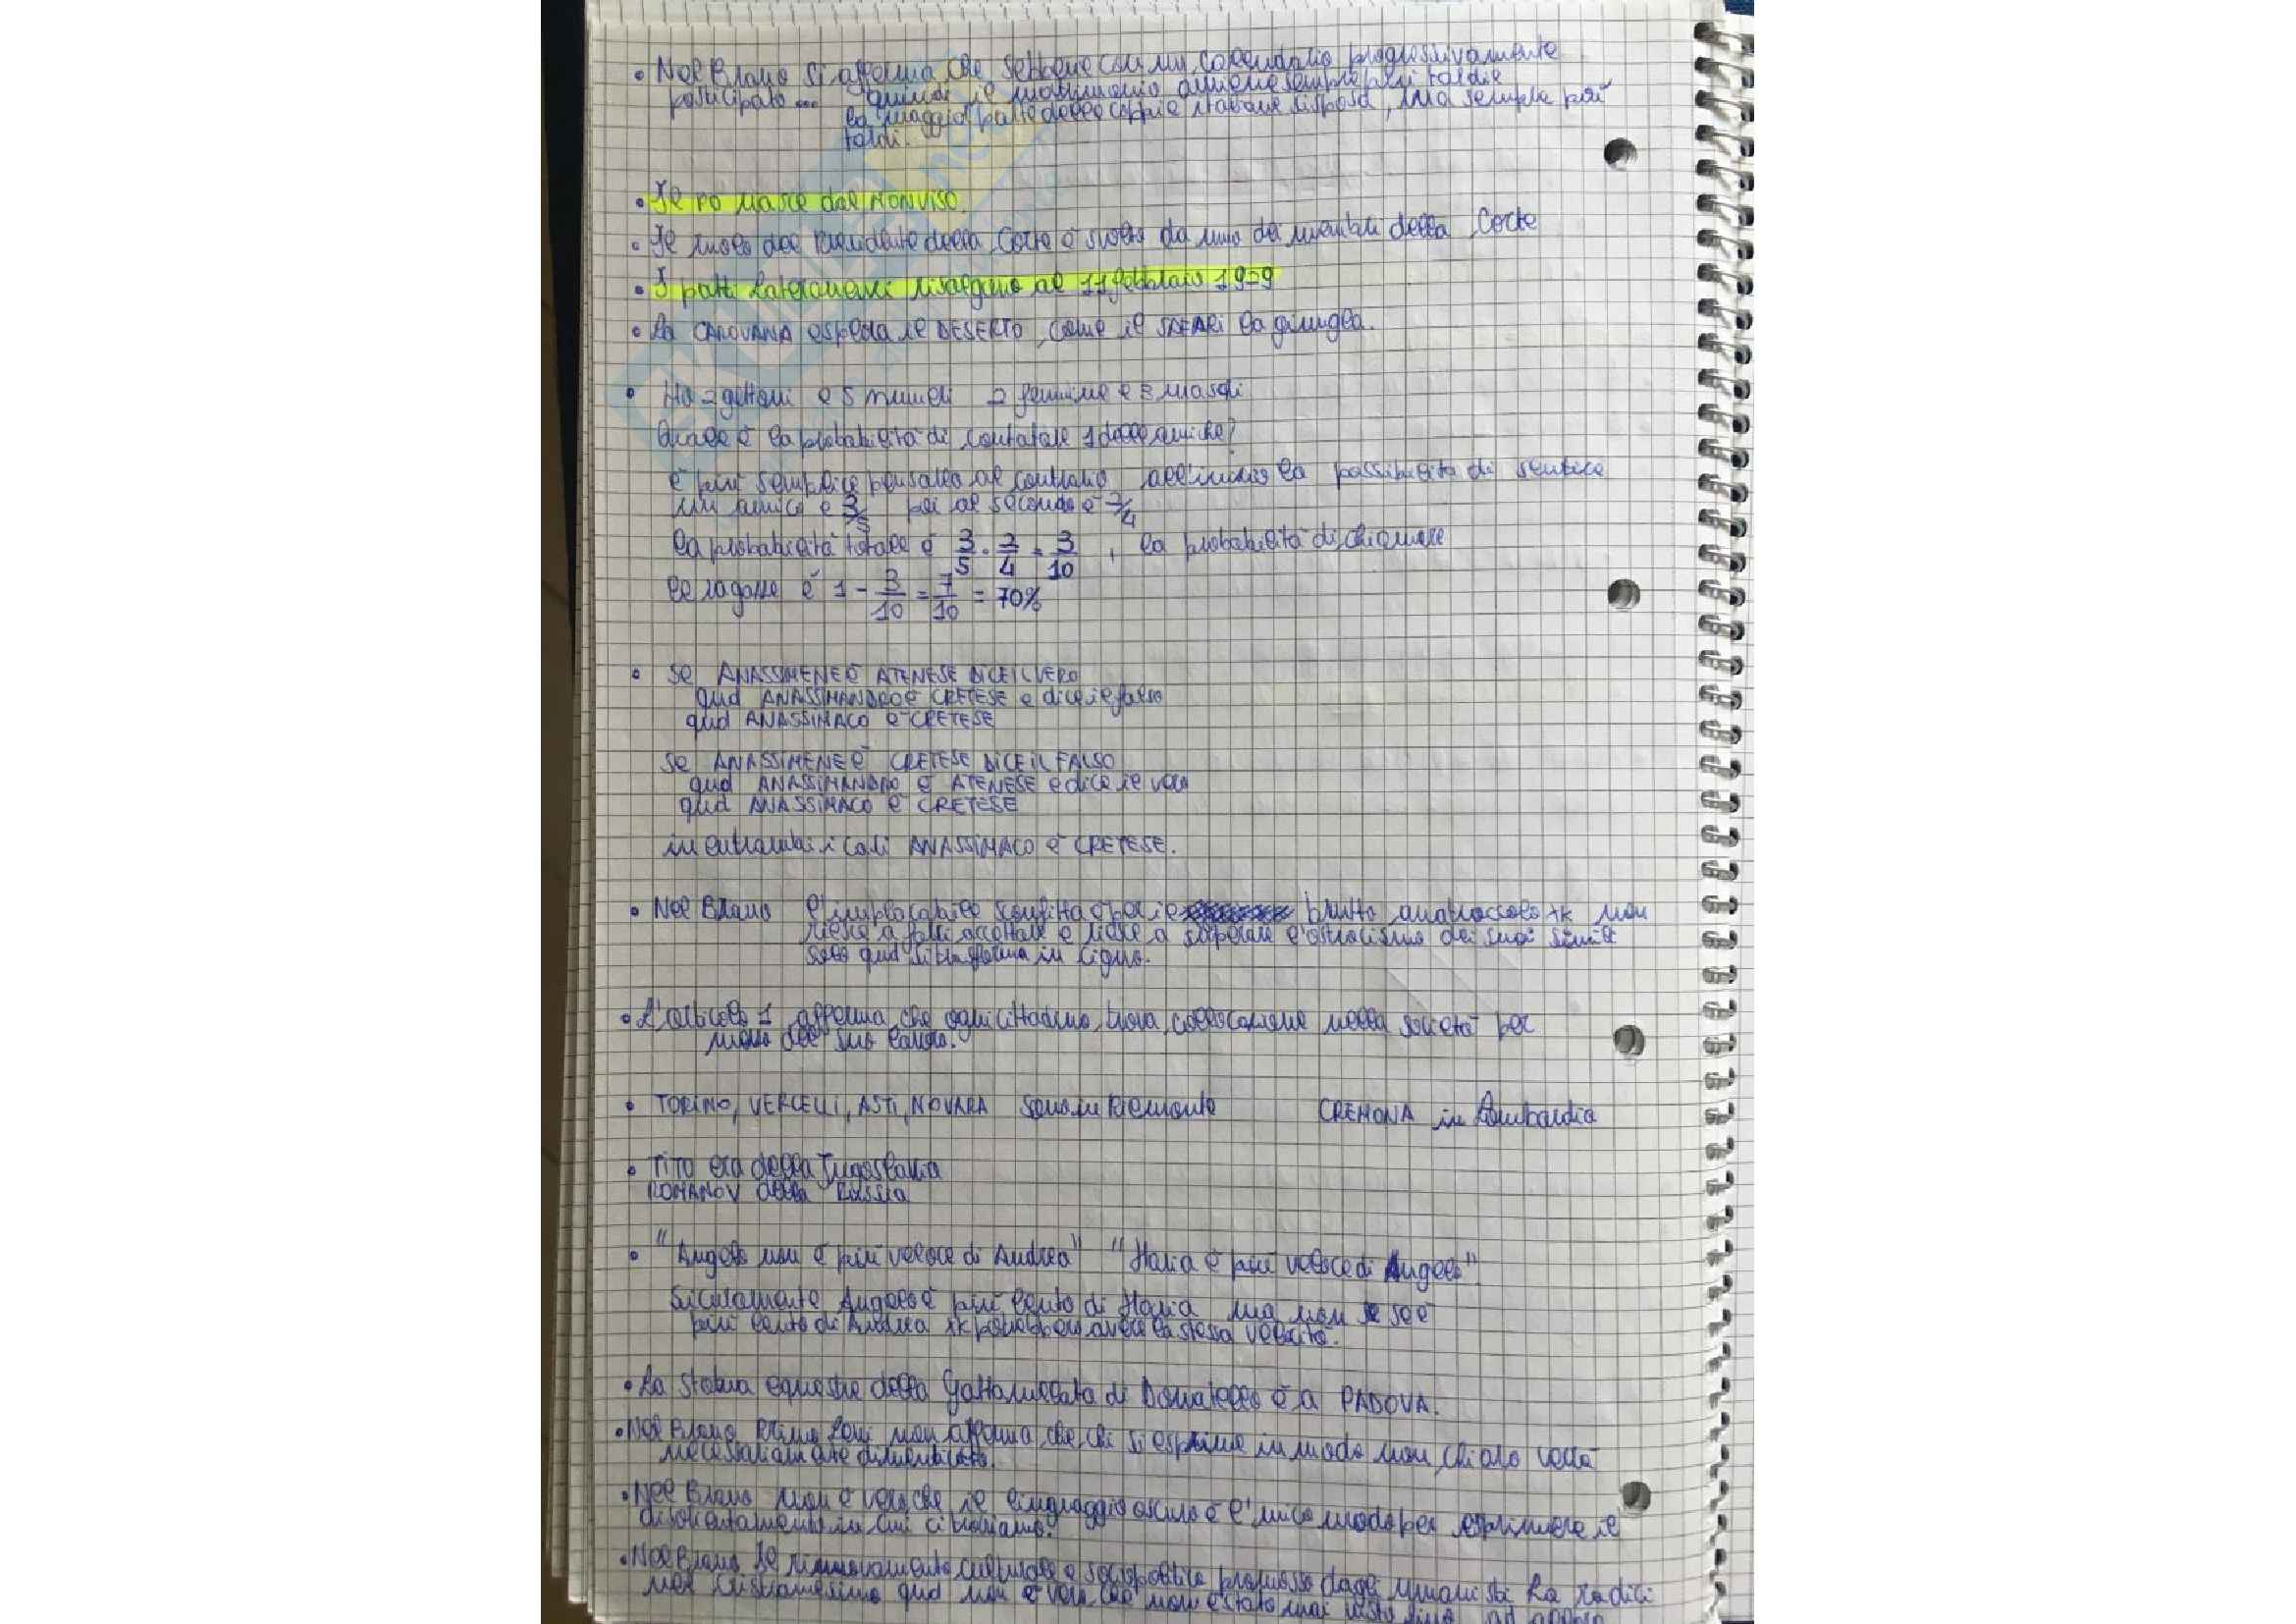 • Nel Brano si afferma che sebbene con un calendario progressivamente
posticipato ... quindi il matrimonio avviene sempre più tardi e
la maggior parte delle coppie italiane si sposa, ma sempre più
tardi.
• Il PO nasce dal MONVISO.
• Il ruolo del Presidente della Corte è svolto da uno dei membri della Corte
• I patti Lateranensi risalgono al 11 febbraio 1929
• La CAROVANA esplora il DESERTO, come il SAFARI la giungla.
• Ha 2 gettoni e 5 numeri 2 femmine e 3 maschi
Qual è la probabilità di contattare 1 delle amiche?
è più semplice pensarla al contrario, all'inizio la possibilità di sentire
un amico è 3/5 poi al secondo è 2/4
la probabilità totale è 3/5 · 2/4 = 3/10, la probabilità di chiamare
le ragazze è 1 - 3/10 = 7/10 = 70%
• Se ANASSIMENE È ATENESE DICE IL VERO
qnd ANASSIMANDRO È CRETESE e dice il falso
qnd ANASSIMACO È CRETESE
Se ANASSIMENE È CRETESE DICE IL FALSO
qnd ANASSIMANDRO È ATENESE e dice il vero
qnd ANASSIMACO È CRETESE
in entrambi i casi ANASSIMACO È CRETESE.
• Nel Brano l'implacabile sconfitta è per il brutto anatroccolo xk non
riesce a farsi accettare e riesce a superare l'ostracismo dei suoi simili
solo qnd si trasforma in cigno.
• L'articolo 1 afferma che ogni cittadino trova collocazione nella società per
mezzo del suo lavoro.
• TORINO, VERCELLI, ASTI, NOVARA sono in Piemonte CREMONA in Lombardia
• TITO era della Jugoslavia
ROMANOV della Russia
• "Angelo non è più veloce di Andrea" "Ilaria è più veloce di Angelo"
Sicuramente Angelo è più lento di Ilaria ma non se è
più lento di Andrea xk potrebbero avere la stessa velocità.
• La statua equestre della Gattamelata di Donatello è a PADOVA.
• Nel Brano Primo Levi non afferma che chi si esprime in modo non chiaro verrà
necessariamente dimenticato.
• Nel Brano non è vero che il linguaggio oscuro è l'unico modo per esprimere il
disorientamento in cui ci troviamo.
• Nel Brano Il rinnovamento culturale e sociopolitico promosso dagli umanisti ha radici
nel cristianesimo qnd non è vero che non è stato mai visto fino ad allora